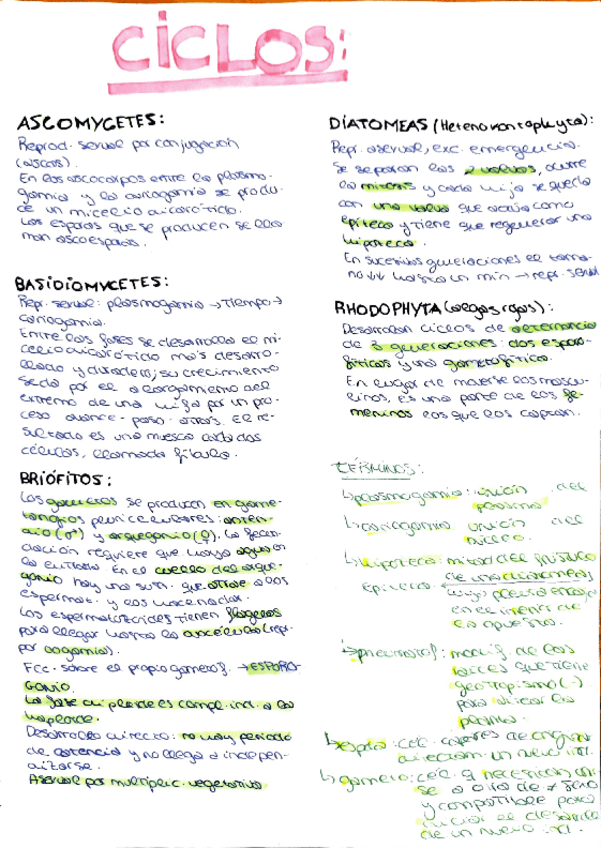 CICLOS:
ASCOMYCETES:
Reprod. sexual por conjugación
(ascos).
En los ascocarpos entre la plasmo-
gamia y la cariogamia se produ-
ce un micelio dicariótico.
Las esporas que se producen se lla-
man ascosporas.
BASIDIOMYCETES:
Repr. sexual: plasmogamia → Tiempo →
cariogamia.
Entre las fases se desarrolla el mi-
celio dicariótico más desarro-
llado y duradero; su crecimiento
se da por el alargamiento del
extremo de una hifa por un pro-
ceso avance-paso-atrás. El re-
sultado es una muesca cada dos
células, llamada fíbula.
BRIÓFITOS:
Los gametos se producen en game-
tangios pluricelulares: anteri-
dio (♂) y arquegonio (♀). La fecun-
dación requiere que haya agua en
la entrada. En el cuello del arque-
gonio hay una sust. que atrae a los
espermat. y los hace nadar.
Los espermatozoides tienen flagelos
para llegar hasta la ovocélula (repr.
por oogamia).
Fec. sobre el propio gametof. → ESPORO-
GONIO.
La fase diploide es compl. ind. a la
haploide.
Desarrollo directo: no hay periodo
de latencia y no llega a indepen-
dizarse.
Asexual por multiplic. vegetativa
DIATOMEAS (Heterokontophyta):
Repr. asexual, exc. emergencia.
Se separan las 2 valvas, ocurre
la mitosis y cada hija se queda
con una valva que actúa como
epiteca y tiene que regenerar una
hipoteca.
En sucesivas generaciones el tama-
no ↓↓ hasta un min → repr. sexual
RHODOPHYTA (algas rojas):
Desarrollan ciclos de alternancia
de 3 generaciones: dos esporo-
fíticas y una gametofítica.
En lugar de moverse los mascu-
linos, es una parte de los fe-
meninos los que los captan.
TÉRMINOS:
↳ plasmogamia: unión del
plasma
↳ cariogamia unión del
núcleo.
↳ hipoteca: mitad del frústulo
epiteca de una diatomea,
cuya pieza encaja
en el interior de
la opuesta.
↳ pneumatóf: modif. de las
raíces que tiene
geotropismo (-)
para airear la
planta.
↳ espora: cél. capaces de originar
direcam. un nuevo ind.
↳ gameto: cél. q necesitan unir-
se a otra de ≠ sexo
y compatible para
iniciar el desarrollo
de un nuevo ind.